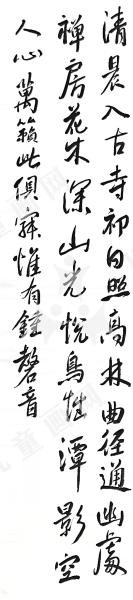 清晨入古寺初日照高林曲径通幽處
禪房花木深山光悅鳥性潭影空
人心萬籟此俱寂惟有鍾磬音